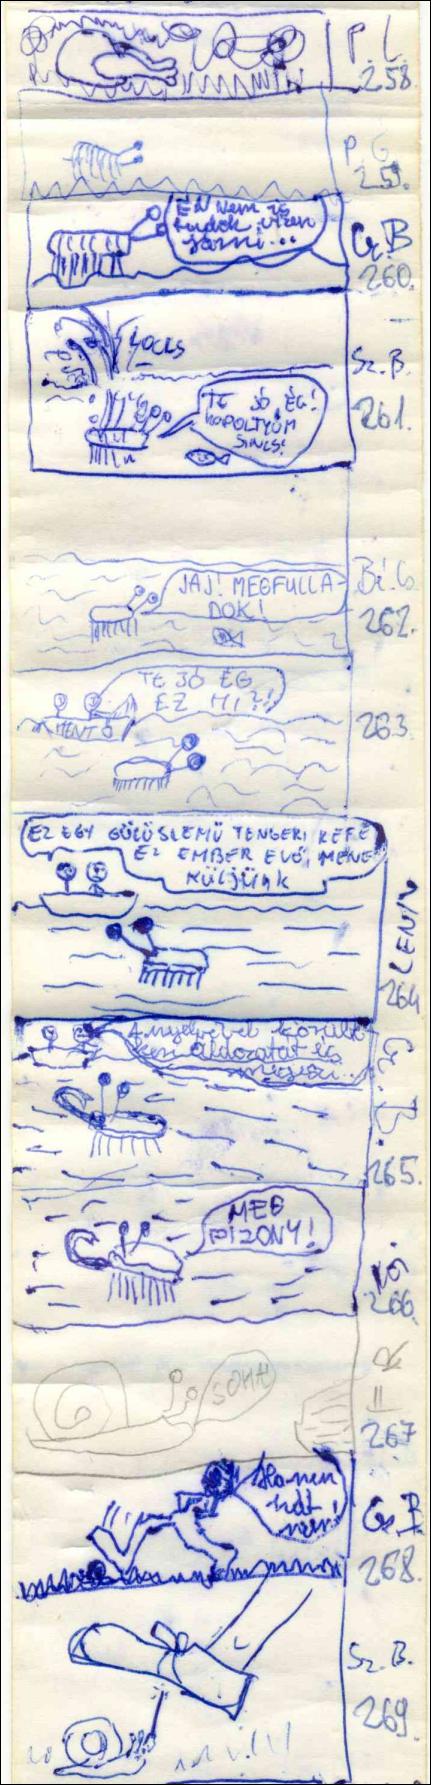 P. L.
258.
P. G.
259.
ÉN NEM IS
tudok vizen
járni...
Cz. B
260.
LOCCS
Sz. B.
TE JÓ ÉG!
KOPOLTYÚM
SINCS!
261.
JAJ! MEGFULLA-
DOK!
262.
TE JÓ ÉG
EZ MI?!
MENTŐ
263.
EZ EGY GÜLÜSZEMŰ TENGERI KEFE
EZ EMBER EVŐ, MENE
KÜLJÜNK
LENIN
264
A nyelvével
áldozatát és
megeszi...
265.
MEG
BIZONY!
266.
267
Ha nem
hát
nem!
268.
Sz. B.
269.